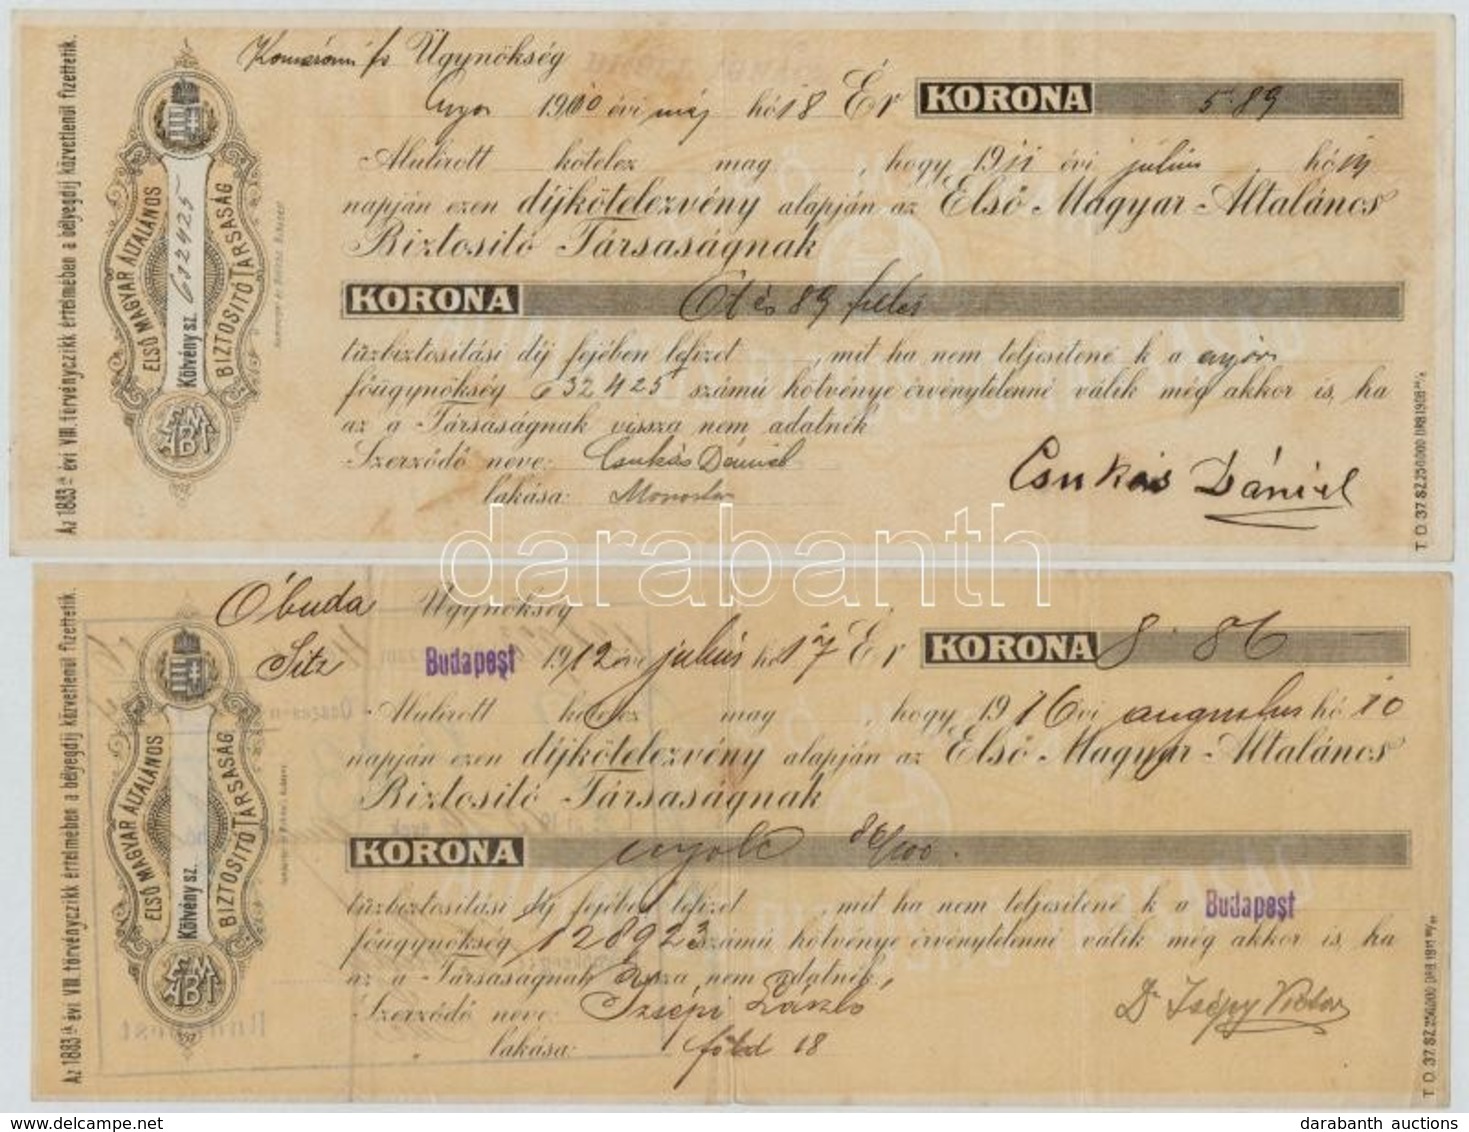 Az 1883 ik évi VIII. törvényczikk értelmében a bélyegdíj közvetlenül fizettetik.
ELSŐ MAGYAR ÁLTALÁNOS
BIZTOSITÓ TÁRSASÁG
Kötvény sz. 632425
EMÁBT
Komáromi fő Ügynökség
1910 évi máj hó 18 Ér KORONA 5.89
Alulirott kötelez mag , hogy 1911 évi július hó
napján ezen díjkötelezvény alapján az Első Magyar Általános
Biztositó Társaságnak
KORONA Öt és 89 fillér
tűzbiztosítási díj fejében lefizet , mit ha nem teljesitené k a győri
főügynökség 632425 számú kötvénye érvénytelenné válik még akkor is, ha
az a Társaságnak vissza nem adatnék
Szerződő neve: Csukás Dániel
lakása: Monostor
Csukás Dániel
T. O. 37. SZ. 250.000 DRB 1908
darabanth
Az 1883 ik évi VIII. törvényczikk értelmében a bélyegdíj közvetlenül fizettetik.
ELSŐ MAGYAR ÁLTALÁNOS
BIZTOSITÓ TÁRSASÁG
Kötvény sz.
EMÁBT
Óbuda Ügynökség
Sitz Budapest 1912 évi július hó 17 Ér KORONA 8.86
Alulirott kötelez mag , hogy 1916 évi augusztus hó 10
napján ezen díjkötelezvény alapján az Első Magyar Általános
Biztositó Társaságnak
KORONA nyolc 86/100.
tűzbiztosítási díj fejében lefizet , mit ha nem teljesitené k a Budapest
főügynökség 128923 számú kötvénye érvénytelenné válik még akkor is, ha
az a Társaságnak vissza nem adatnék,
Szerződő neve: László
lakása: föld 18
Dr
T. O. 37. SZ. 250.000 DRB 1911
www.delcampe.net
darabanth auctions